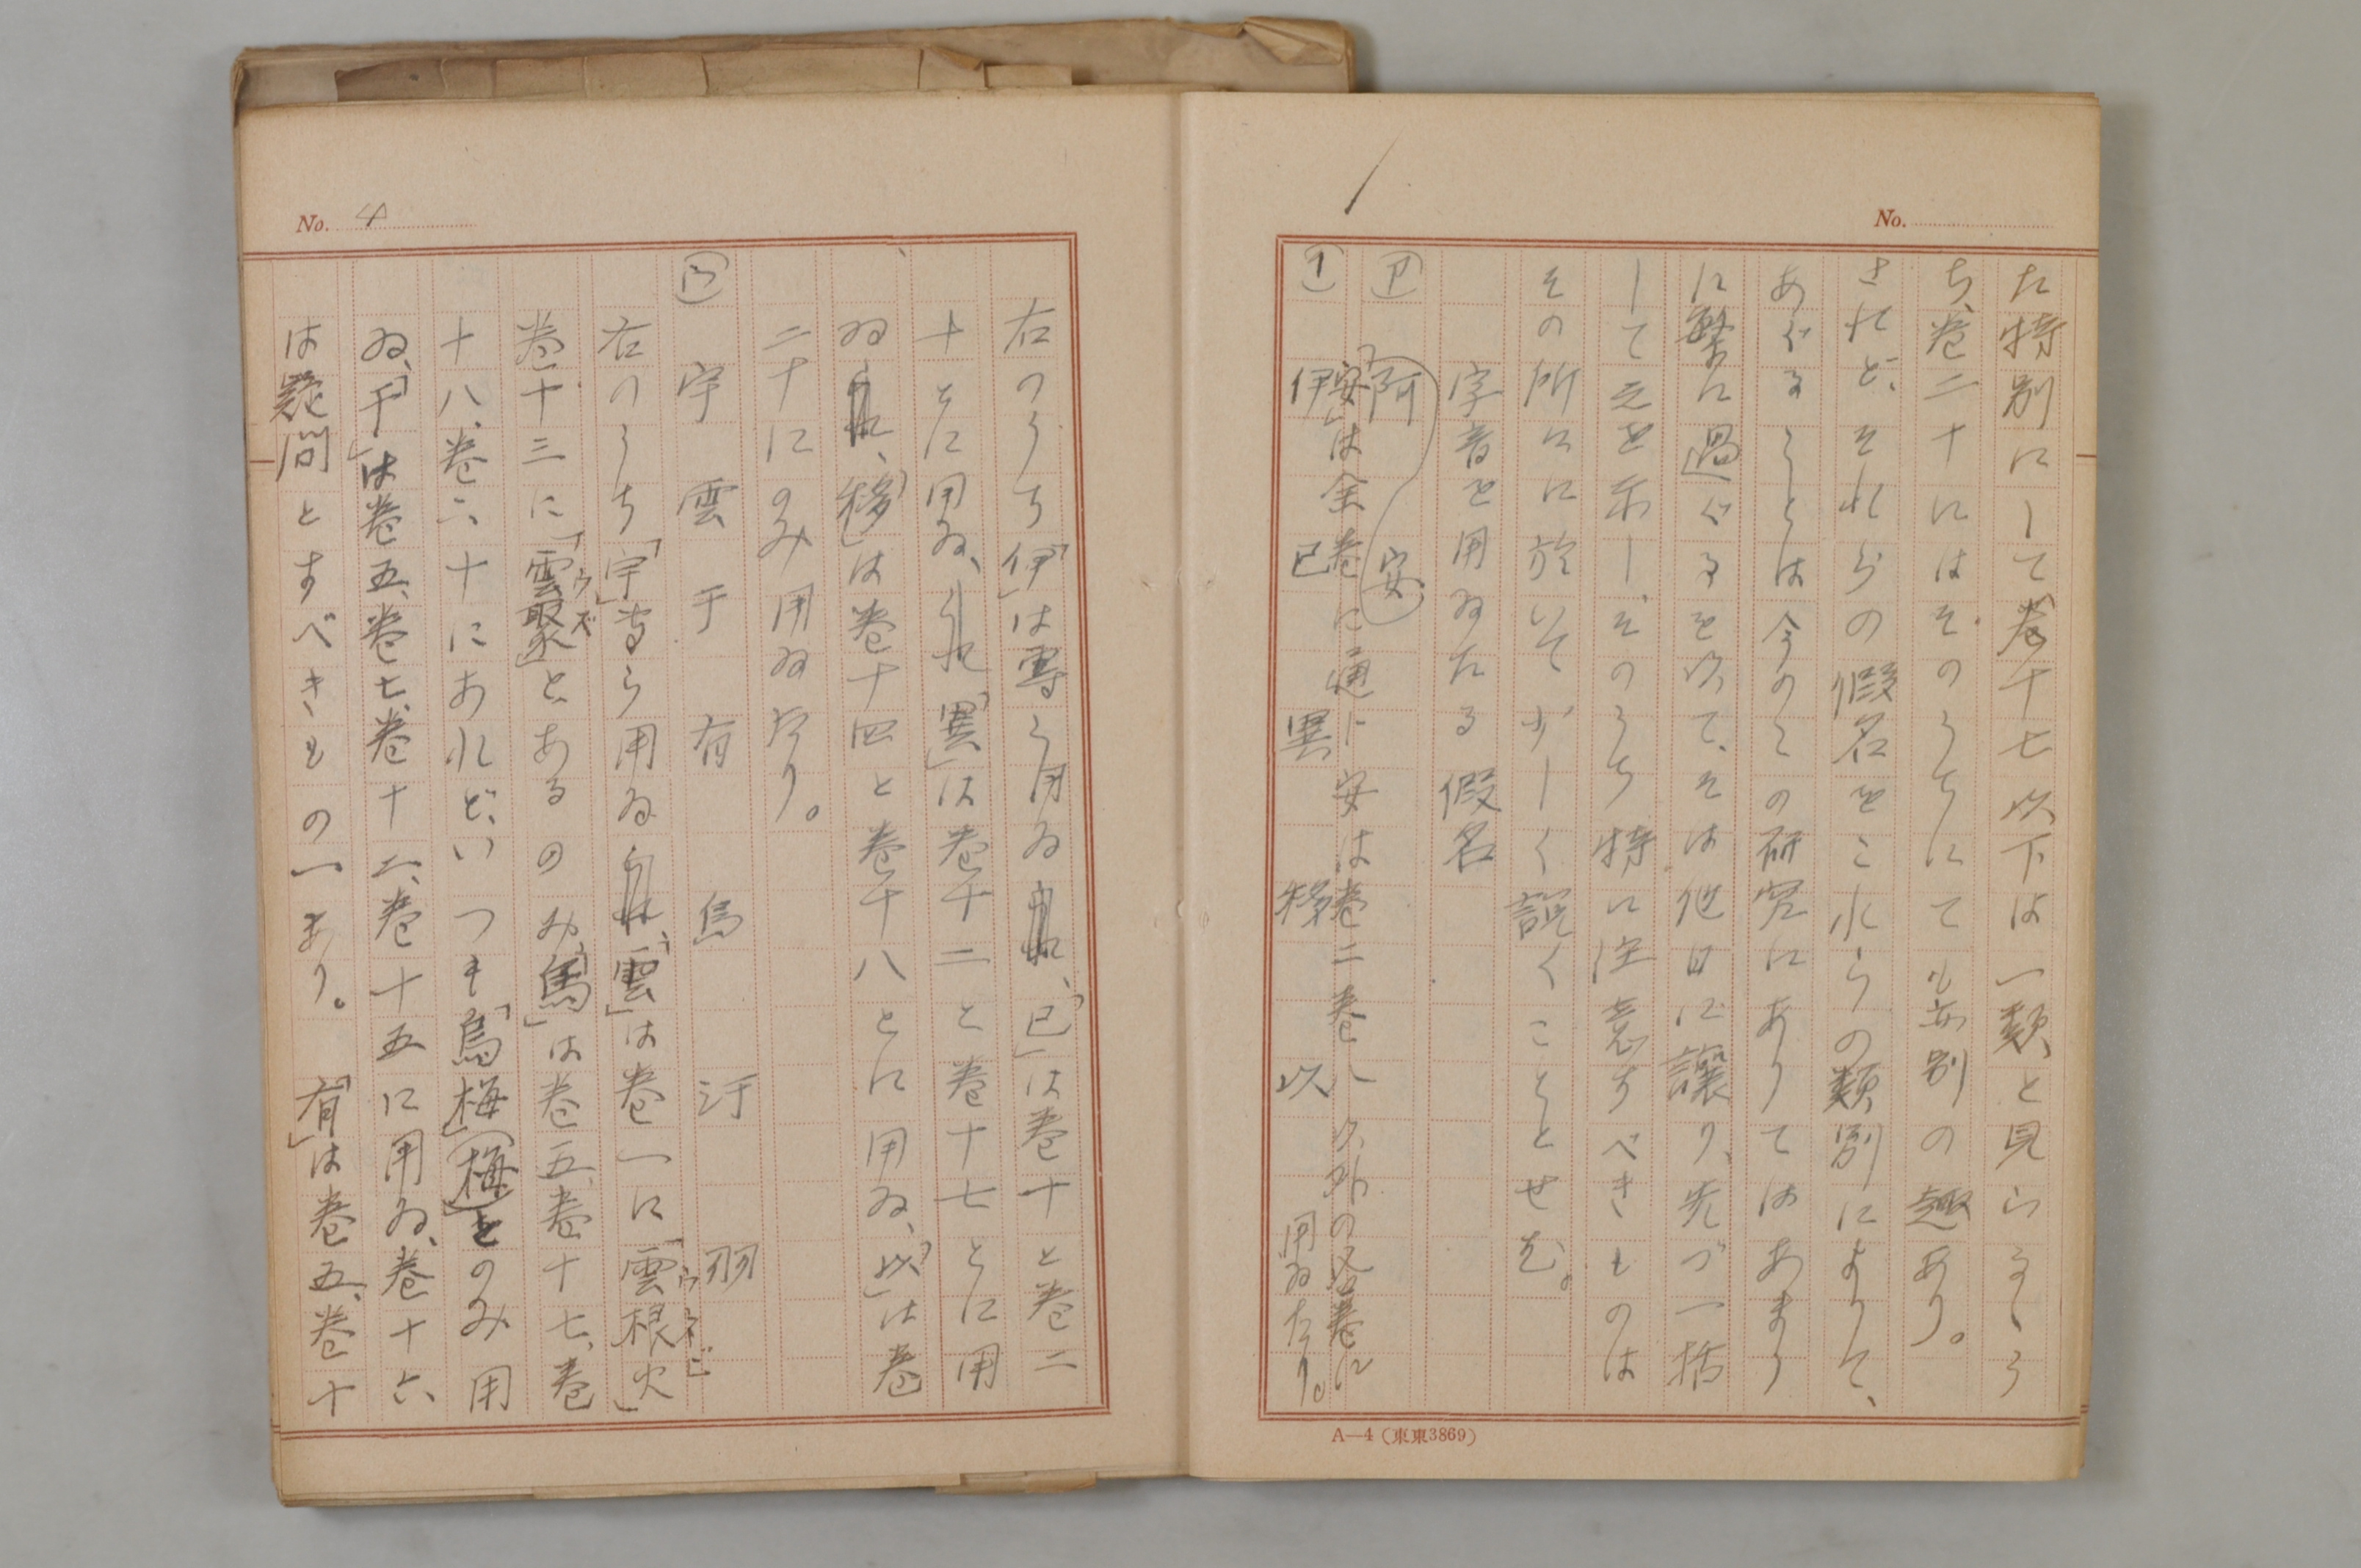 No.
た特別にして巻十七以下は一類と見らる、う
ち、巻二十にはそのうちにても亦別の趣あり。
されど、それらの假名をこれらの類別によりて、
あぐることは今のこの研究にありてはあまり
に繁に過ぐるを以て、そは他日に譲り、先づ一括
して之を示し、そのうち特に注意すべきものは
その所々に於いて少しく説くことゝせむ。
字音を用ゐたる假名
ア 阿 安
「安」は全巻に通に 安は巻二巻 以外の各巻に用ゐたり。
イ 伊 已 異 移 以
A—4 (東東3869)
No. 4
右のうち「伊」は専ら用ゐられ、「已」は巻十と巻二
十とに用ゐられ「異」は巻十二と巻十七とに用
ゐられ、「移」は巻十四と巻十八とに用ゐ、「以」は巻
二十にのみ用ゐたり。
ウ 宇 雲 于 有 烏 汙 羽
右のうち「宇」専ら用ゐられ、「雲」は巻一に「雲根火」ウネビ
巻十三に「雲聚」ウズとあるのみ「烏」は巻五、巻十七、巻
十八、巻二十にあれど、いつも「烏梅」(梅)とのみ用
ゐ、「于」は巻五、巻七、巻十二、巻十五に用ゐ、巻十六
は疑問とすべきもの一あり。「有」は巻五、巻十